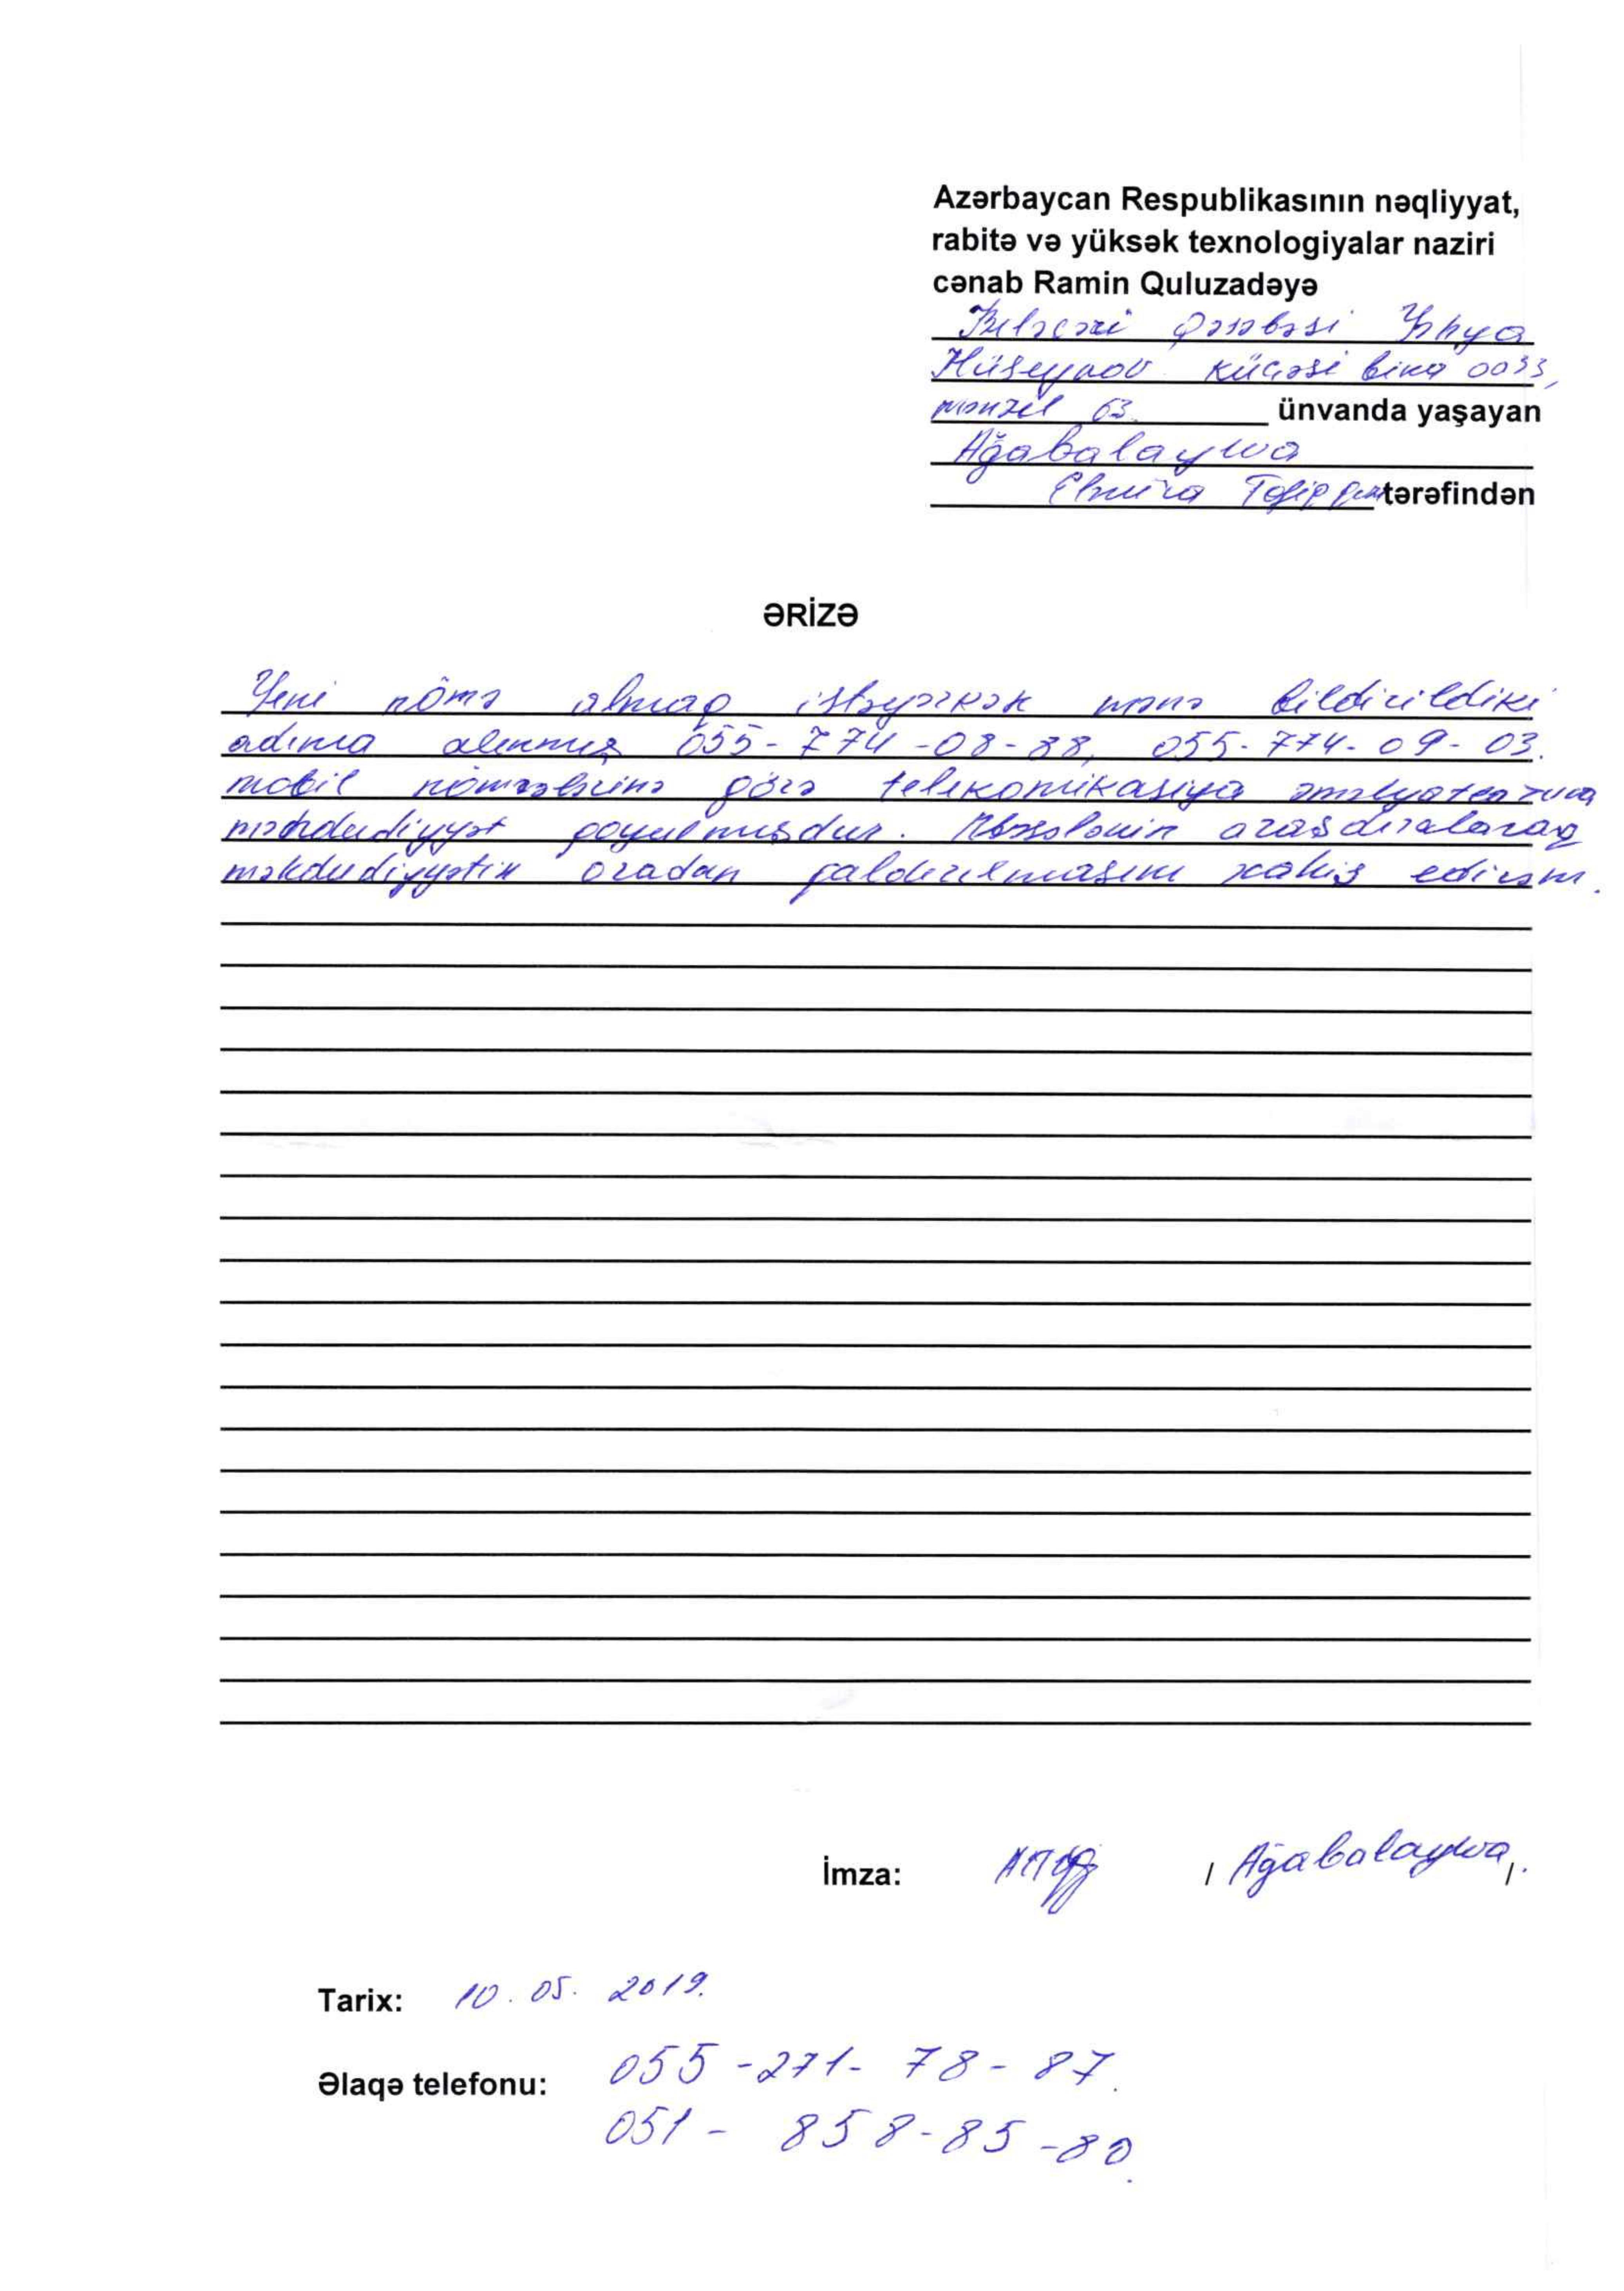 Azərbaycan Respublikasının nəqliyyat,
rabitə və yüksək texnologiyalar naziri
cənab Ramin Quluzadəyə
Biləcəri qəsəbəsi Yəhya
Hüseynov küçəsi bina 0033,
mənzil 63 ünvanda yaşayan
Ağabalayeva
Elmira Tofiq qızı tərəfindən
ƏRİZƏ
Yeni nömə almaq istəyərkək mənə bildirildiki
adıma alınmış 055-774-08-88, 055-774-09-03.
mobil nömrələrinə görə telekomikasiya əməlyatlarıma
məhdudiyyət qoyulmuşdur. araşdırılaraq
məhdudiyyətin aradan qaldırılmasını xahiş edirəm.
İmza: / Ağabalayeva /.
Tarix: 10.05.2019.
Əlaqə telefonu: 055-271-78-87.
051-858-85-80.